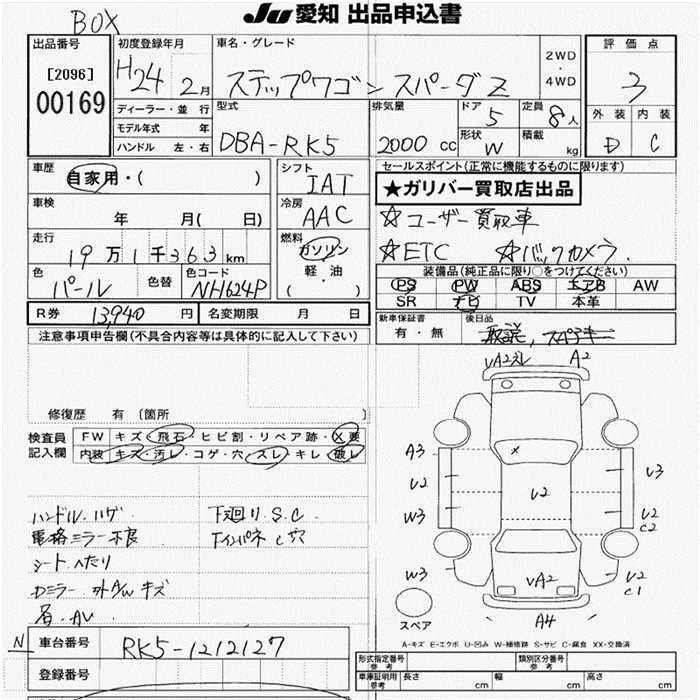 BOX
JU 愛知 出品申込書
出品番号
[2096]
00169
初度登録年月
H24 2月
ディーラー・並行
モデル年式 年
ハンドル 左・右
車名・グレード
ステップワゴン スパーダZ
2WD
・
4WD
型式
DBA-RK5
排気量
2000 cc
ドア
5
定員
8人
形状
W
積載
kg
評価点
3
外装 内装
D C
車歴
自家用・( )
車検
年 月( 日)
走行
19万1千363km
色
パール
色替
色コード
NH624P
シフト
IAT
冷房
AAC
燃料
ガソリン
軽・油
( ・ )
R券 13,940 円
名変期限 月 日
セールスポイント(正常に機能するものに限ります)
★ガリバー買取店出品
☆ユーザー買取車
☆ETC ☆バックカメラ.
装備品(純正品に限り○をつけてください)
PS PW ABS エアB AW
SR ナビ TV 本革
新車保証書
有・無
後日品
取説, スペアキー
注意事項申告欄(不具合内容等は具体的に記入して下さい)
修復歴 有 〔箇所 〕
検査員
記入欄
FW キズ・飛石・ヒビ割・リペア跡・X要
内装 キズ・汚レ・コゲ・穴・スレ・キレ・破レ
ハンドル ハゲ
電格ミラー不良
シートへたり
Dミラー 外カw キズ
下廻り S.C
UA2スレ A2
A3
U2
W3
W3
U2
UA2
U3
U2
C2
U2
C1
A4
スペア
A-キズ E-エクボ U-凹み W-補修跡 S-サビ C-腐食 XX-交換済
N
車台番号
RK5-1212127
登録番号
形式指定番号
参考
類別区分番号
参考
車庫証明用
参考
長さ cm 幅 cm 高さ cm